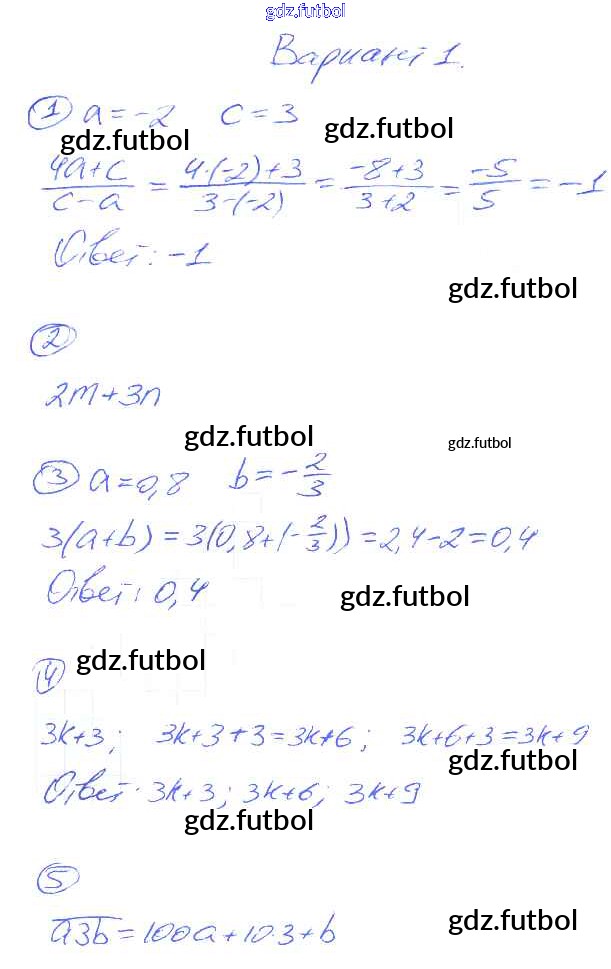 gdz.futbol
Вариант 1.
① a = -2 c = 3
gdz.futbol gdz.futbol
(4a+c)/(c-a) = (4·(-2)+3)/(3-(-2)) = (-8+3)/(3+2) = (-5)/5 = -1
Ответ: -1
gdz.futbol
②
2m+3n
gdz.futbol gdz.futbol
③ a=0,8 b=-2/3
3(a+b)=3(0,8+(-2/3))=2,4-2=0,4
Ответ: 0,4
gdz.futbol
④ gdz.futbol
3k+3; 3k+3+3=3k+6; 3k+6+3=3k+9
gdz.futbol
Ответ: 3k+3; 3k+6; 3k+9
gdz.futbol
⑤
gdz.futbol
a̅3̅b̅=100a+10·3+b